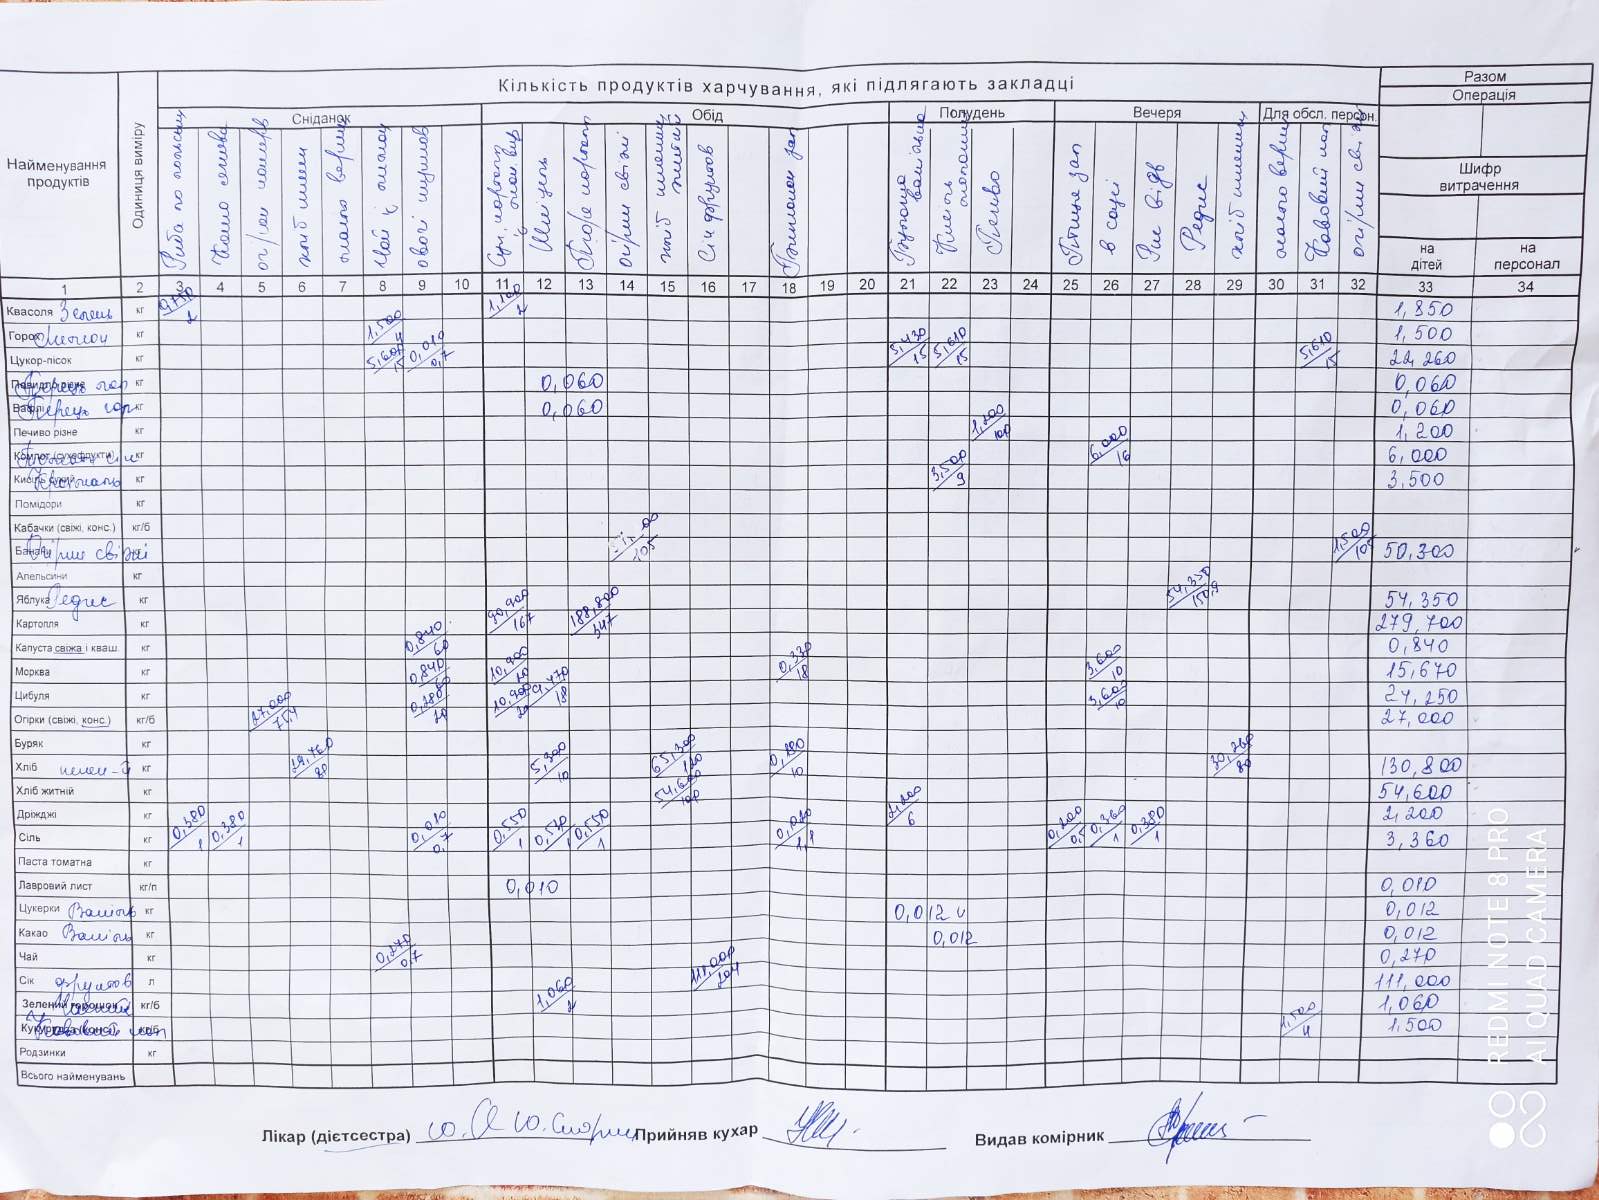 Кількість продуктів харчування, які підлягають закладці
Разом
Операція
Сніданок Обід Полудень Вечеря Для обсл. персон.
Найменування продуктів
Одиниця виміру
Риба по польськи
огірки консерв
хліб пшен
молоко варене
Чай з лимоном
овочі
Шніцель
Пюре картопл
огірки свіжі
хліб пшенич
житній
Сік фруктов
Булочка ванільна
Кисель
Печиво
Птиця зап
в соусі
Рис відв
Редис
хліб пшенич
молоко варене
Кавовий нап
огірки свіжі
Шифр витрачення
на дітей
на персонал
1 2 3 4 5 6 7 8 9 10 11 12 13 14 15 16 17 18 19 20 21 22 23 24 25 26 27 28 29 30 31 32 33 34
Квасоля Зелень кг 0,750/2 1,100/2 1,850
Горох Лимон кг 1,500/4 1,500
Цукор-пісок кг 5,600/15 0,010/0,7 5,430/15 5,610/15 5,610/15 22,260
Перець кг 0,060 0,060
Вафлі Перець гор кг 0,060 0,060
Печиво різне кг 1,200/100 1,200
Компот (сухофрукти) кг 6,000/16 6,000
Кисіль сухий Крохмаль кг 3,500/9 3,500
Помідори кг
Кабачки (свіжі, конс.) кг/б
Банани Огірки свіжі кг /105 1,500/105 50,300
Апельсини кг
Яблука Редис кг 54,350/150,9 54,350
Картопля кг 90,900/167 188,800/347 279,700
Капуста свіжа і кваш. кг 0,840/60 0,840
Морква кг 0,840/60 10,900/20 0,330/18 3,600/10 15,670
Цибуля кг 0,280/20 10,900/20 9,470/18 3,600/10 24,250
Огірки (свіжі, конс.) кг/б 27,000/75,4 27,000
Буряк кг
Хліб пшен-й кг 29,760/80 5,300/10 65,300/120 0,180/10 30,260/80 130,800
Хліб житній кг 54,600/100 54,600
Дріжджі кг 2,200/6 2,200
Сіль кг 0,380/1 0,380/1 0,010/0,7 0,550/1 0,530/1 0,550/1 0,020/1,1 0,200/0,5 0,360/1 0,380/1 3,360
Паста томатна кг
Лавровий лист кг/п 0,010 0,010
Цукерки Ваніль кг 0,012 0,012
Какао Ваніль кг 0,012 0,012
Чай кг 0,270/0,7 0,270
Сік фруктов л 111,000/204 111,000
Зелений горошок кг/б 1,060/2 1,060
Кукурудза (конс) Кавовий нап кг/б 1,500/4 1,500
Родзинки кг
Всього найменувань
Лікар (дієтсестра) Прийняв кухар Видав комірник
REDMI NOTE 8 PRO
AI QUAD CAMERA